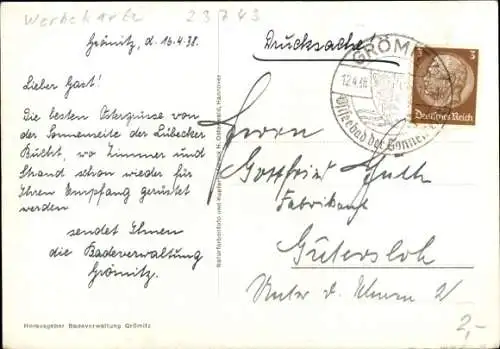 Werbekarte 23743
Grömitz, d. 16.4.38.
Drucksache
Lieber Gast!
Die besten Ostergrüsse von
der Sonnenseite der Lübecker
Bucht, wo Zimmer und
Strand schon wieder für
Ihren Empfang gerüstet
werden
sendet Ihnen
die Badeverwaltung
Grömitz.
Herausgeber Badeverwaltung Grömitz
Naturfarbenfoto und Kupfertiefdruck H. Osterwald, Hannover
GRÖM
12.4.38
Ostseebad der Sonne
3 3
Deutsches Reich
Herrn
Gottfried Güth
Fabrikant
Gütersloh
Unter d. Ulmen
2,-